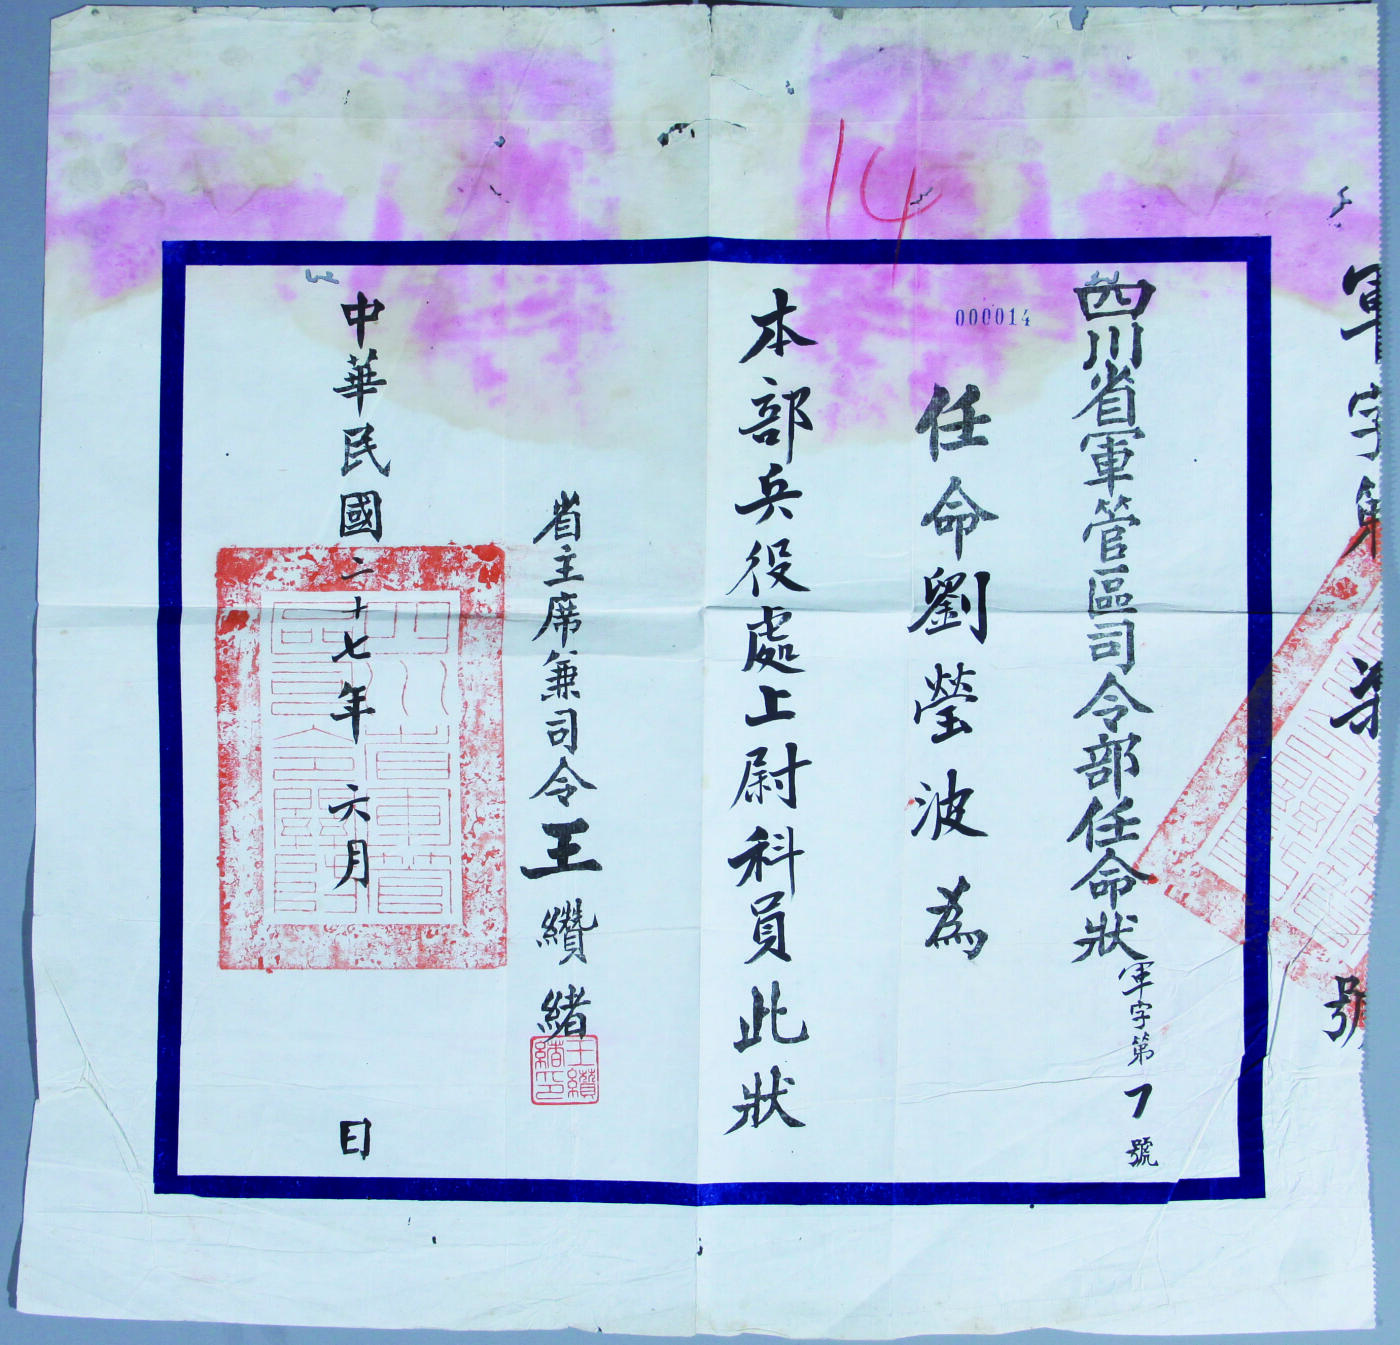 軍字第 柒 號
四川省軍管區司令部任命狀 軍字第7號
000014
14
任命劉瑩波為
本部兵役處上尉科員此狀
省主席兼司令王纘緒
王纘緒印
中華民國二十七年 六月 日
四川省軍管區司令部關防